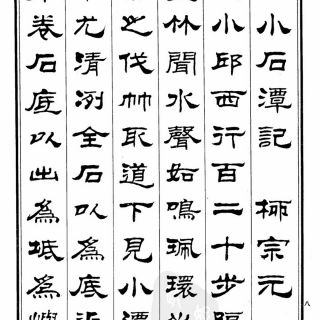 小石潭記 柳宗元
小邱西行百二十步隔
竹聞水聲如鳴珮環心
之伐竹取道下見小潭
尤清冽全石以為底近
卷石底以出為坻為嶼
八